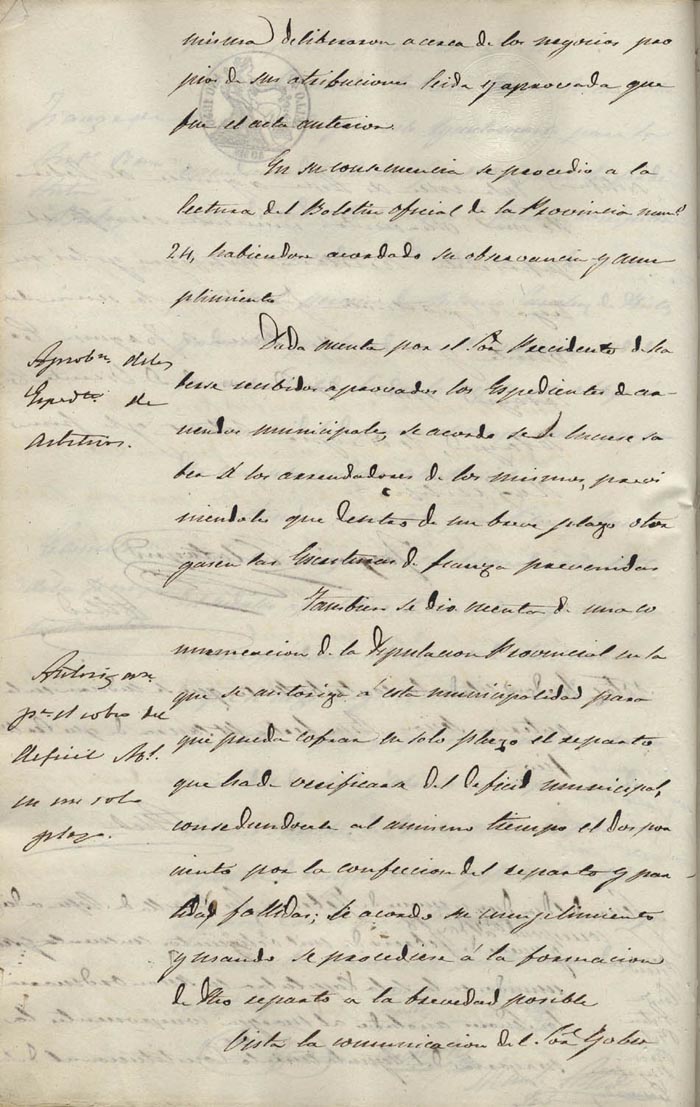 misma deliberaron acerca de los negocios pro
pios de sus atribuciones leida y aprovada que
fue el acta anterior
En su consecuencia se procedio a la
lectura del Boletin oficial de la Provincia num.º
24, habiendose acordado su observancia y cum
plimiento
Aprobn. de los
Expedtes. de
arbitrios.
Dada cuenta por el Sor. Precidente de ha
berse recibidos aprovados los Expedientes de ar
riendos municipales, se acordo se le hiciese sa
ber á los arrendadores de los mismos, previ
niendoles que dentro de un breve plazo otor
gasen las Escrituras de fianza prevenidas
Tambien se dio cuenta de una co
municacion de la Diputacion Provincial en la
que se autoriza á esta municipalidad para
que pueda cobrar en solo plazo el reparto
que ha de verificarse del deficid municipal,
consediendosele al mismo tiempo el dos por
ciento por la confeccion del reparto y par
tidas fallidas; se acordo su cumplimiento
y cuando se procediese á la formacion
de dho reparto a la brevedad posible
Autorizon.
pa. el cobro del
deficit Mpl.
en un solo
plazo.
Vista la comunicacion del Sor. Gober